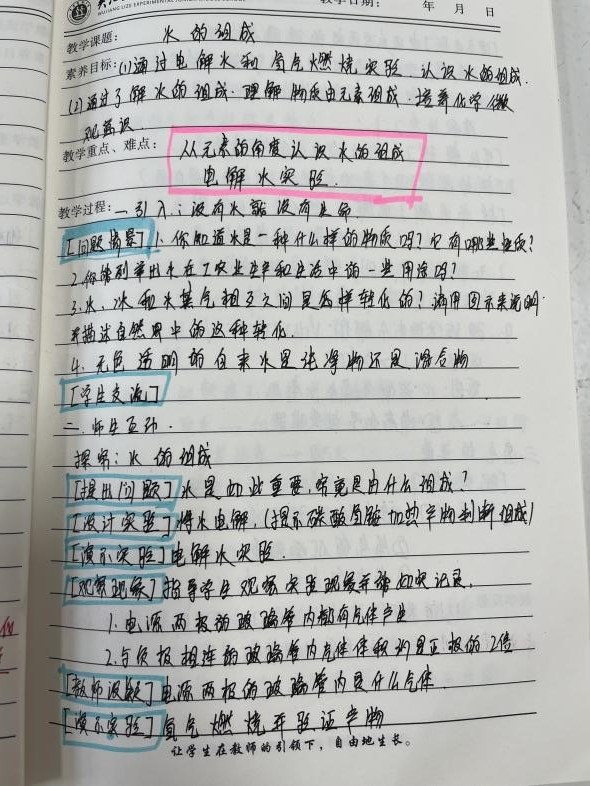 教学日期： 年 月 日
教学课题： 水的组成
素养目标：(1)通过电解水和氢气燃烧实验.认识水的组成.
(2)通过了解水的组成.理解物质由元素组成.培养化学微
观意识
教学重点、难点： 从元素的角度认识水的组成
电解水实验.
教学过程：一.引入：没有水就没有生命.
[问题情景] 1.你知道水是一种什么样的物质吗?它有哪些性质?
2.你能列举出水在工农业生产和生活中的一些用途吗?
3.水、冰和水蒸气相互之间是怎样转化的?请用图示来说明
并描述自然界中的这种转化.
4.无色透明的自来水是纯净物还是混合物
[学生交流]
二.师生互动.
探究：水的组成
[提出问题] 水是如此重要,究竟是由什么组成?
[设计实验] 将水电解,(提示碳酸氢铵加热产物判断组成)
[演示实验] 电解水实验.
[观察现象] 指导学生观察实验现象并请如实记录.
1.电源两极的玻璃管内都有气体产生
2.与负极相连的玻璃管内气体体积约是正极的2倍
[教师设疑] 电源两极的玻璃管内是什么气体.
[演示实验] 氢气燃烧并验证产物
让学生在教师的引领下，自由地生长。